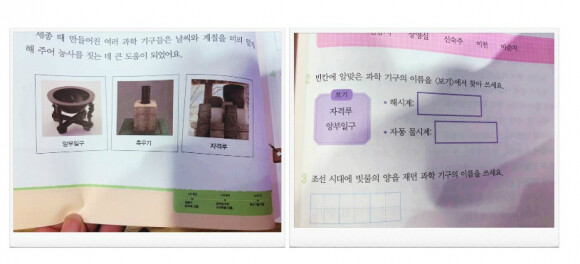 세종 때 만들어진 여러 과학 기구들은 날씨와 계절을 미리
해 주어 농사를 짓는 데 큰 도움이 되었어요.
앙부일구
측우기
자격루
장영실
신숙주
이천
박순지
2 빈칸에 알맞은 과학 기구의 이름을 <보기>에서 찾아 쓰세요.
보기
자격루
앙부일구
• 해시계:
• 자동 물시계:
3 조선 시대에 빗물의 양을 재던 과학 기구의 이름을 쓰세요.